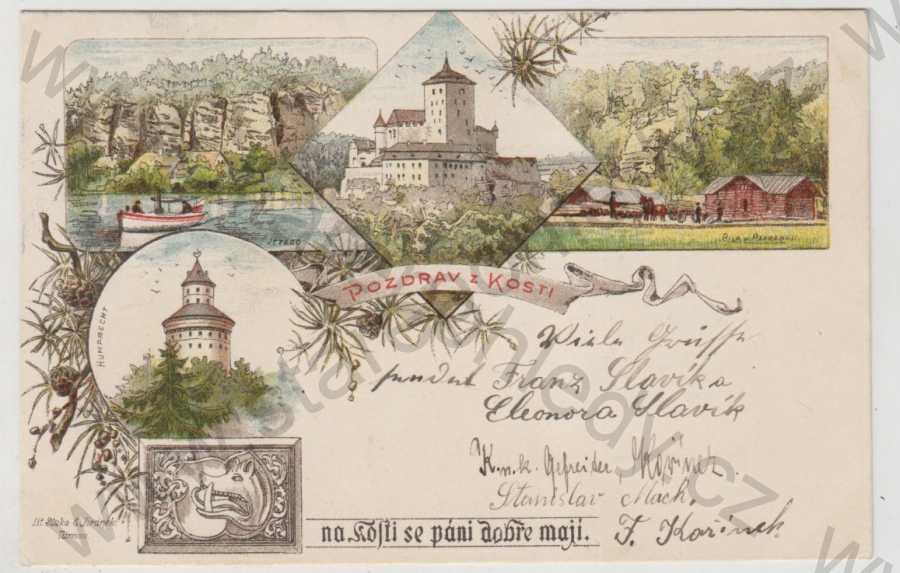 JEZERO
PILA V PLAKÁNKU
HUMPRECHT
POZDRAV Z KOSTI
Viele Grüsse
sendet Franz Slavík a
Eleonora Slavík
K.u.k. Gefreiter
Stanislav Mach.
F. Kořínek
na Kosti se páni dobře mají.
Turnov
www.starepohledy.cz